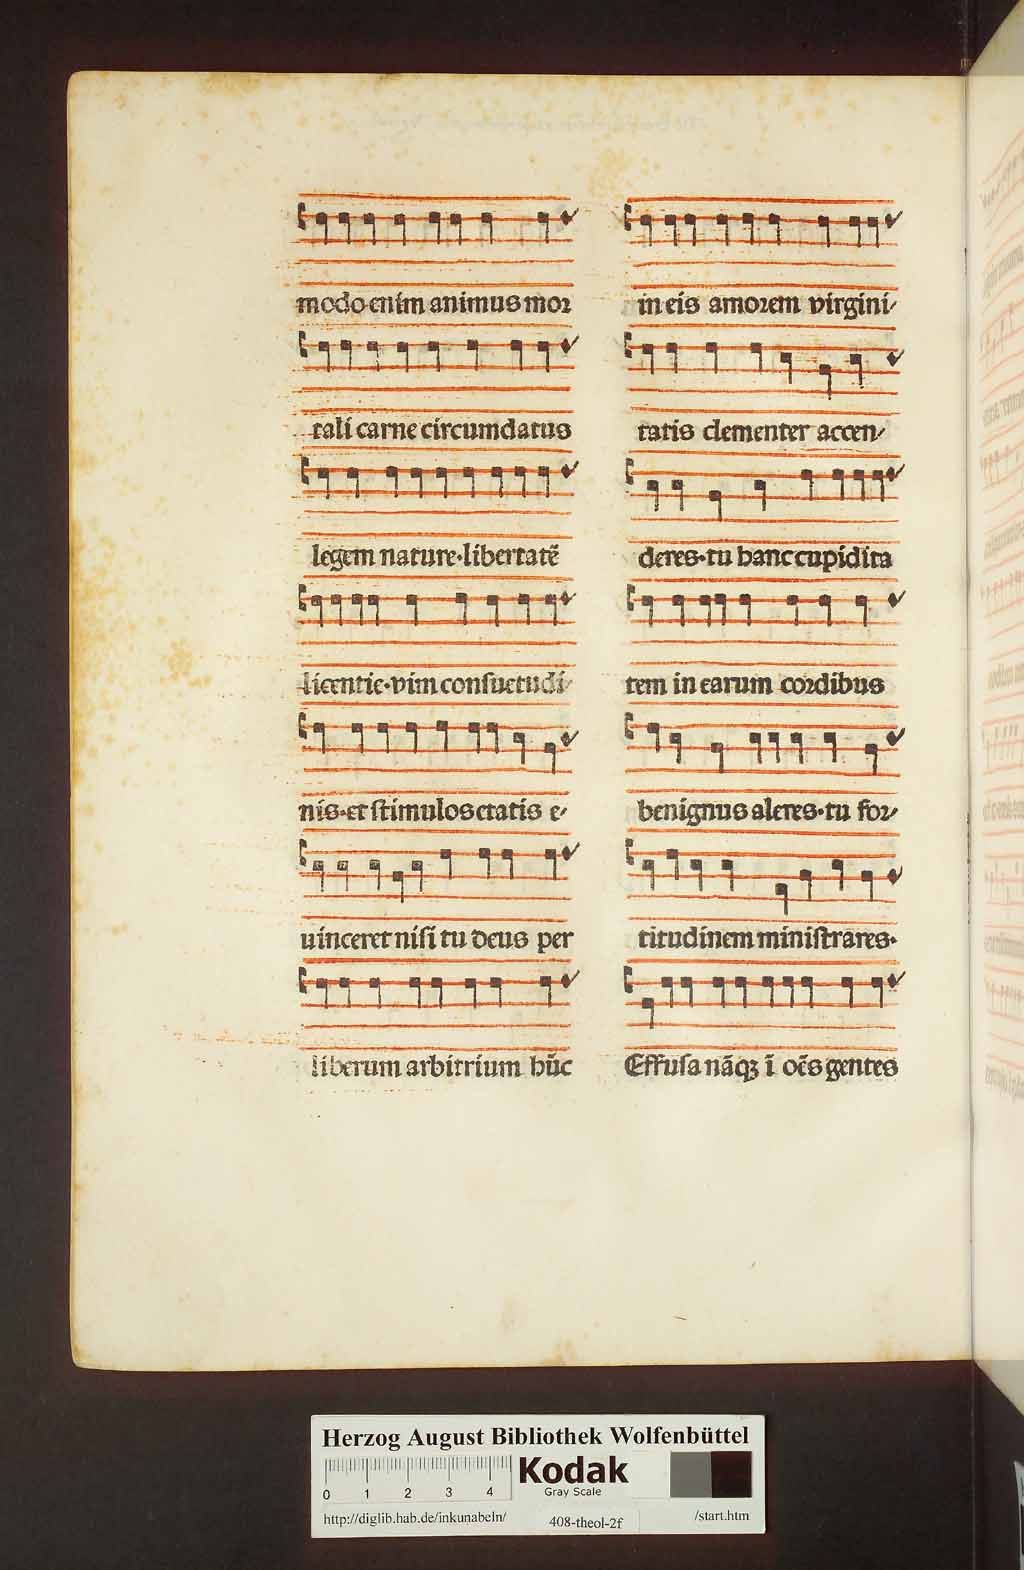 modo enim animus mor
tali carne circumdatus
legem nature·libertatē
licentie·vim consuetudi⸗
nis·et stimulos etatis e⸗
uinceret nisi tu deus per
liberum arbitrium hūc
in eis amorem virgini⸗
tatis clementer accen⸗
deres·tu hanc cupidita
tem in earum cordibus
benignus aleres·tu for⸗
titudinem ministrares·
Effusa nāqꝫ ī oēs gentes
Herzog August Bibliothek Wolfenbüttel
0 1 2 3 4
Kodak
Gray Scale
http://diglib.hab.de/inkunabeln/ 408-theol-2f /start.htm